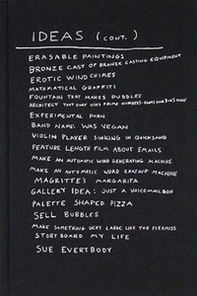 IDEAS (CONT.)
ERASABLE PAINTINGS
BRONZE CAST OF BRONZE CASTING EQUIPMENT
EROTIC WINDCHIMES
MATHEMATICAL GRAFFITI
FOUNTAIN THAT MAKES PUDDLES
ARCHITECT THAT ONLY USES PRIME NUMBERS
EXPERIMENTAL PORN
BAND NAME: WAS VEGAN
VIOLIN PLAYER SINKING IN QUICKSAND
FEATURE LENGTH FILM ABOUT EMAILS
MAKE AN AUTOMATIC WIND GENERATING MACHINE
MAKE AN AUTOMATIC WORD ERASING MACHINE
MAGRITTE'S MARGARITA
GALLERY IDEA: JUST A VOICEMAILBOX
PALETTE SHAPED PIZZA
SELL BUBBLES
MAKE SOMETHING VERY LARGE LIKE THE PYRAMIDS
STORYBOARD MY LIFE
SUE EVERYBODY